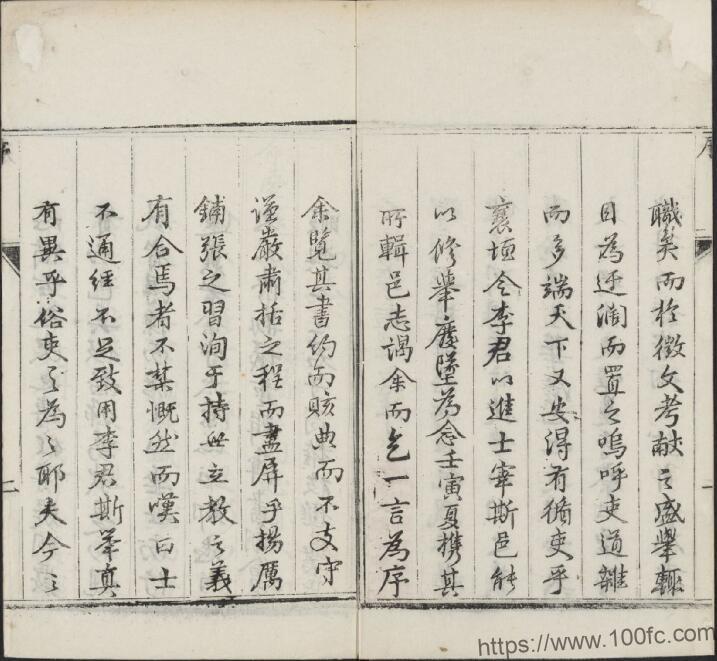 職矣而於徵文考献之盛舉輙
目為迂濶而置之嗚呼吏道雜
而多端天下又安得有循吏乎
襄垣令李君以進士宰斯邑能
以修舉廢墜為念壬寅夏携其
所輯邑志謁余而乞一言為序
余覽其書約而賅典而不支守
謹嚴肅括之程而盡屏乎揚厲
鋪張之習洵于持世立教之義
有合焉者不禁慨然而嘆曰士
不通經不足致用李君斯舉真
有異乎俗吏之為之耶夫今之
序
二
序
一
https://www.100fc.com